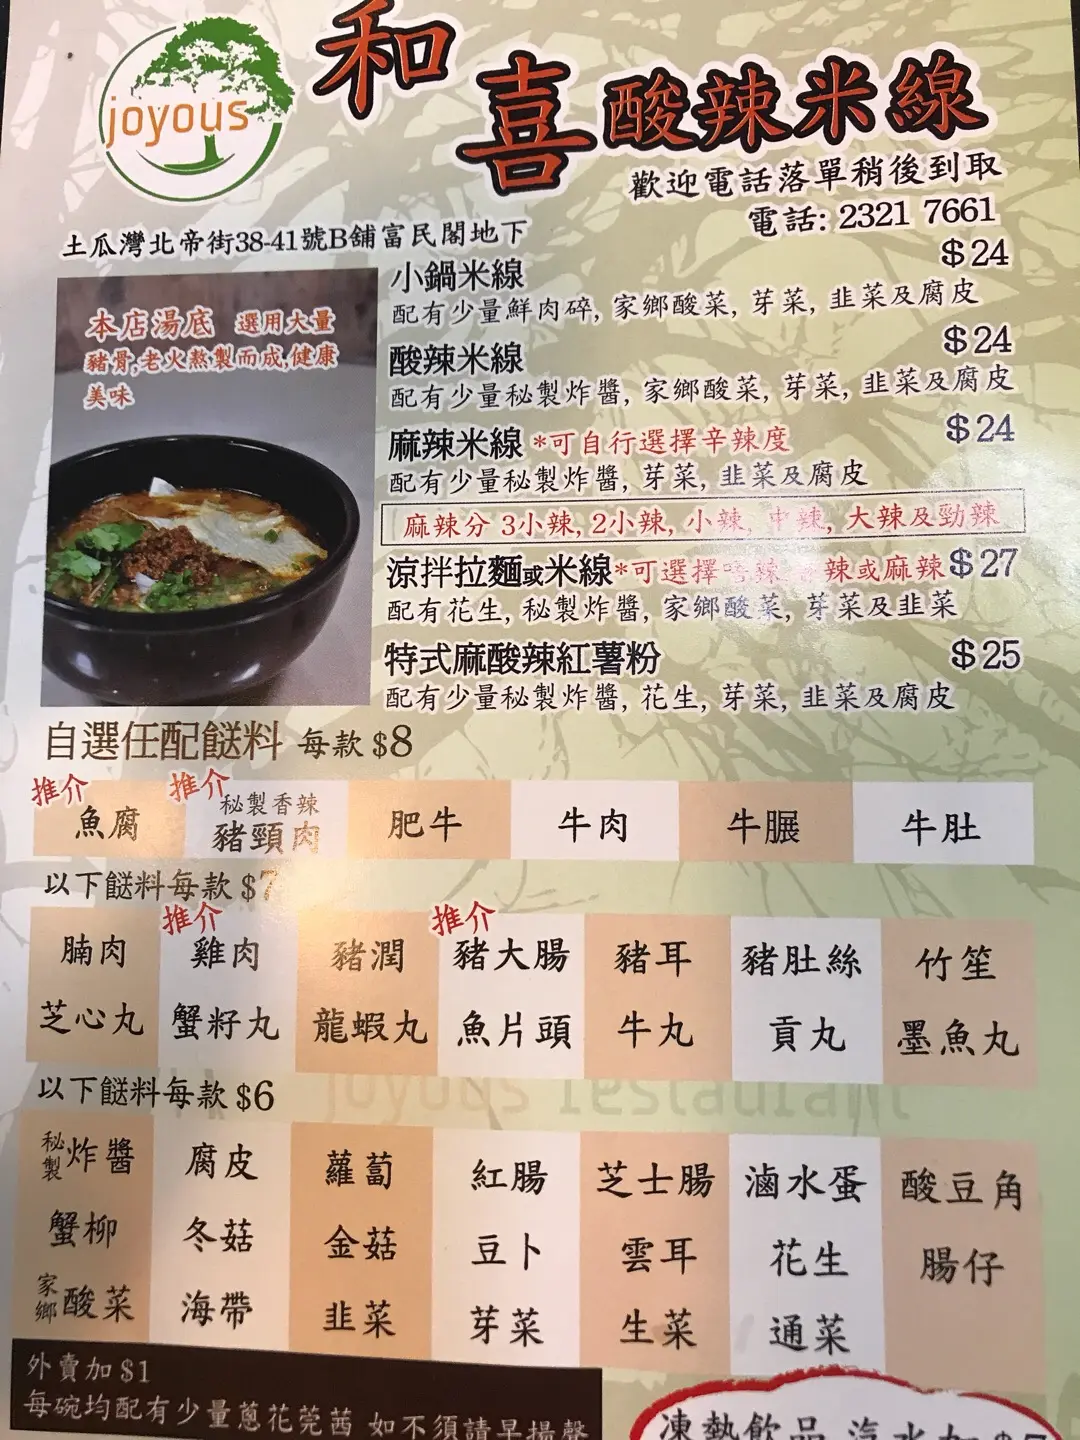 joyous
和喜酸辣米線
歡迎電話落單稍後到取
電話: 2321 7661
土瓜灣北帝街38-41號B舖富民閣地下
本店湯底 選用大量
豬骨,老火熬製而成,健康
美味
小鍋米線 $24
配有少量鮮肉碎, 家鄉酸菜, 芽菜, 韭菜及腐皮
酸辣米線 $24
配有少量秘製炸醬, 家鄉酸菜, 芽菜, 韭菜及腐皮
麻辣米線 *可自行選擇辛辣度 $24
配有少量秘製炸醬, 芽菜, 韭菜及腐皮
麻辣分 3小辣, 2小辣, 小辣, 中辣, 大辣及勁辣
涼拌拉麵或米線 *可選擇唔辣 辣或麻辣 $27
配有花生, 秘製炸醬, 家鄉酸菜, 芽菜及韭菜
特式麻酸辣紅薯粉 $25
配有少量秘製炸醬, 花生, 芽菜, 韭菜及腐皮
自選任配餸料 每款 $8
推介 推介
魚腐 秘製香辣豬頸肉 肥牛 牛肉 牛𦟌 牛肚
以下餸料每款 $7
推介 推介
腩肉 雞肉 豬潤 豬大腸 豬耳 豬肚絲 竹笙
芝心丸 蟹籽丸 龍蝦丸 魚片頭 牛丸 貢丸 墨魚丸
以下餸料每款 $6
joyous restaurant
秘製炸醬 腐皮 蘿蔔 紅腸 芝士腸 滷水蛋 酸豆角
蟹柳 冬菇 金菇 豆卜 雲耳 花生 腸仔
家鄉酸菜 海帶 韭菜 芽菜 生菜 通菜
外賣加 $1
每碗均配有少量蔥花莞茜 如不須請早揚聲
凍熱飲品 汽水加